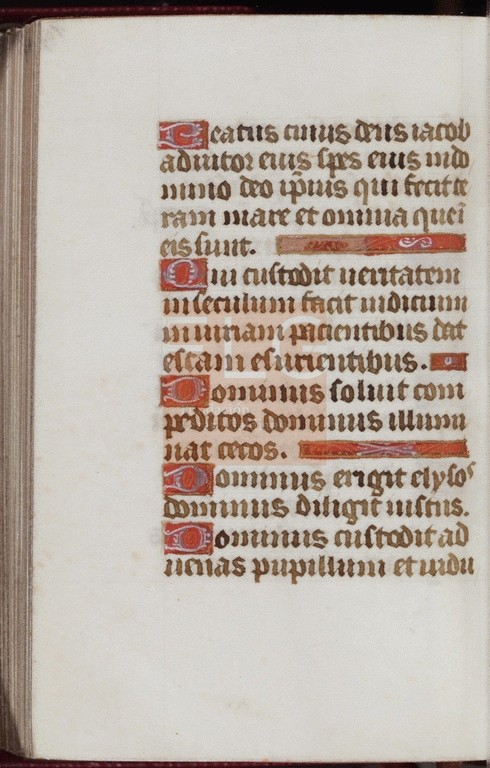 Beatus cuius deus iacob
adiutor eius spes eius in do
mino deo ip̄ius qui fecit te
ram mare et omnia que ī
eis sunt.
Qui custodit ueritatem
in seculum facit iudicium
iniuriam pacientibus dat
escam esurientibus.
Dominus soluit com
peditos dominus illumi
nat cecos.
Dominus erigit elysos
dominus diligit iustus.
Dominus custodit ad
uenas pupillum et uidu